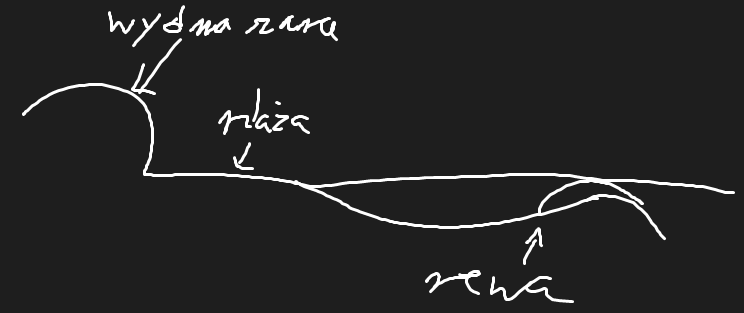 wydma szara
plaża
rewa